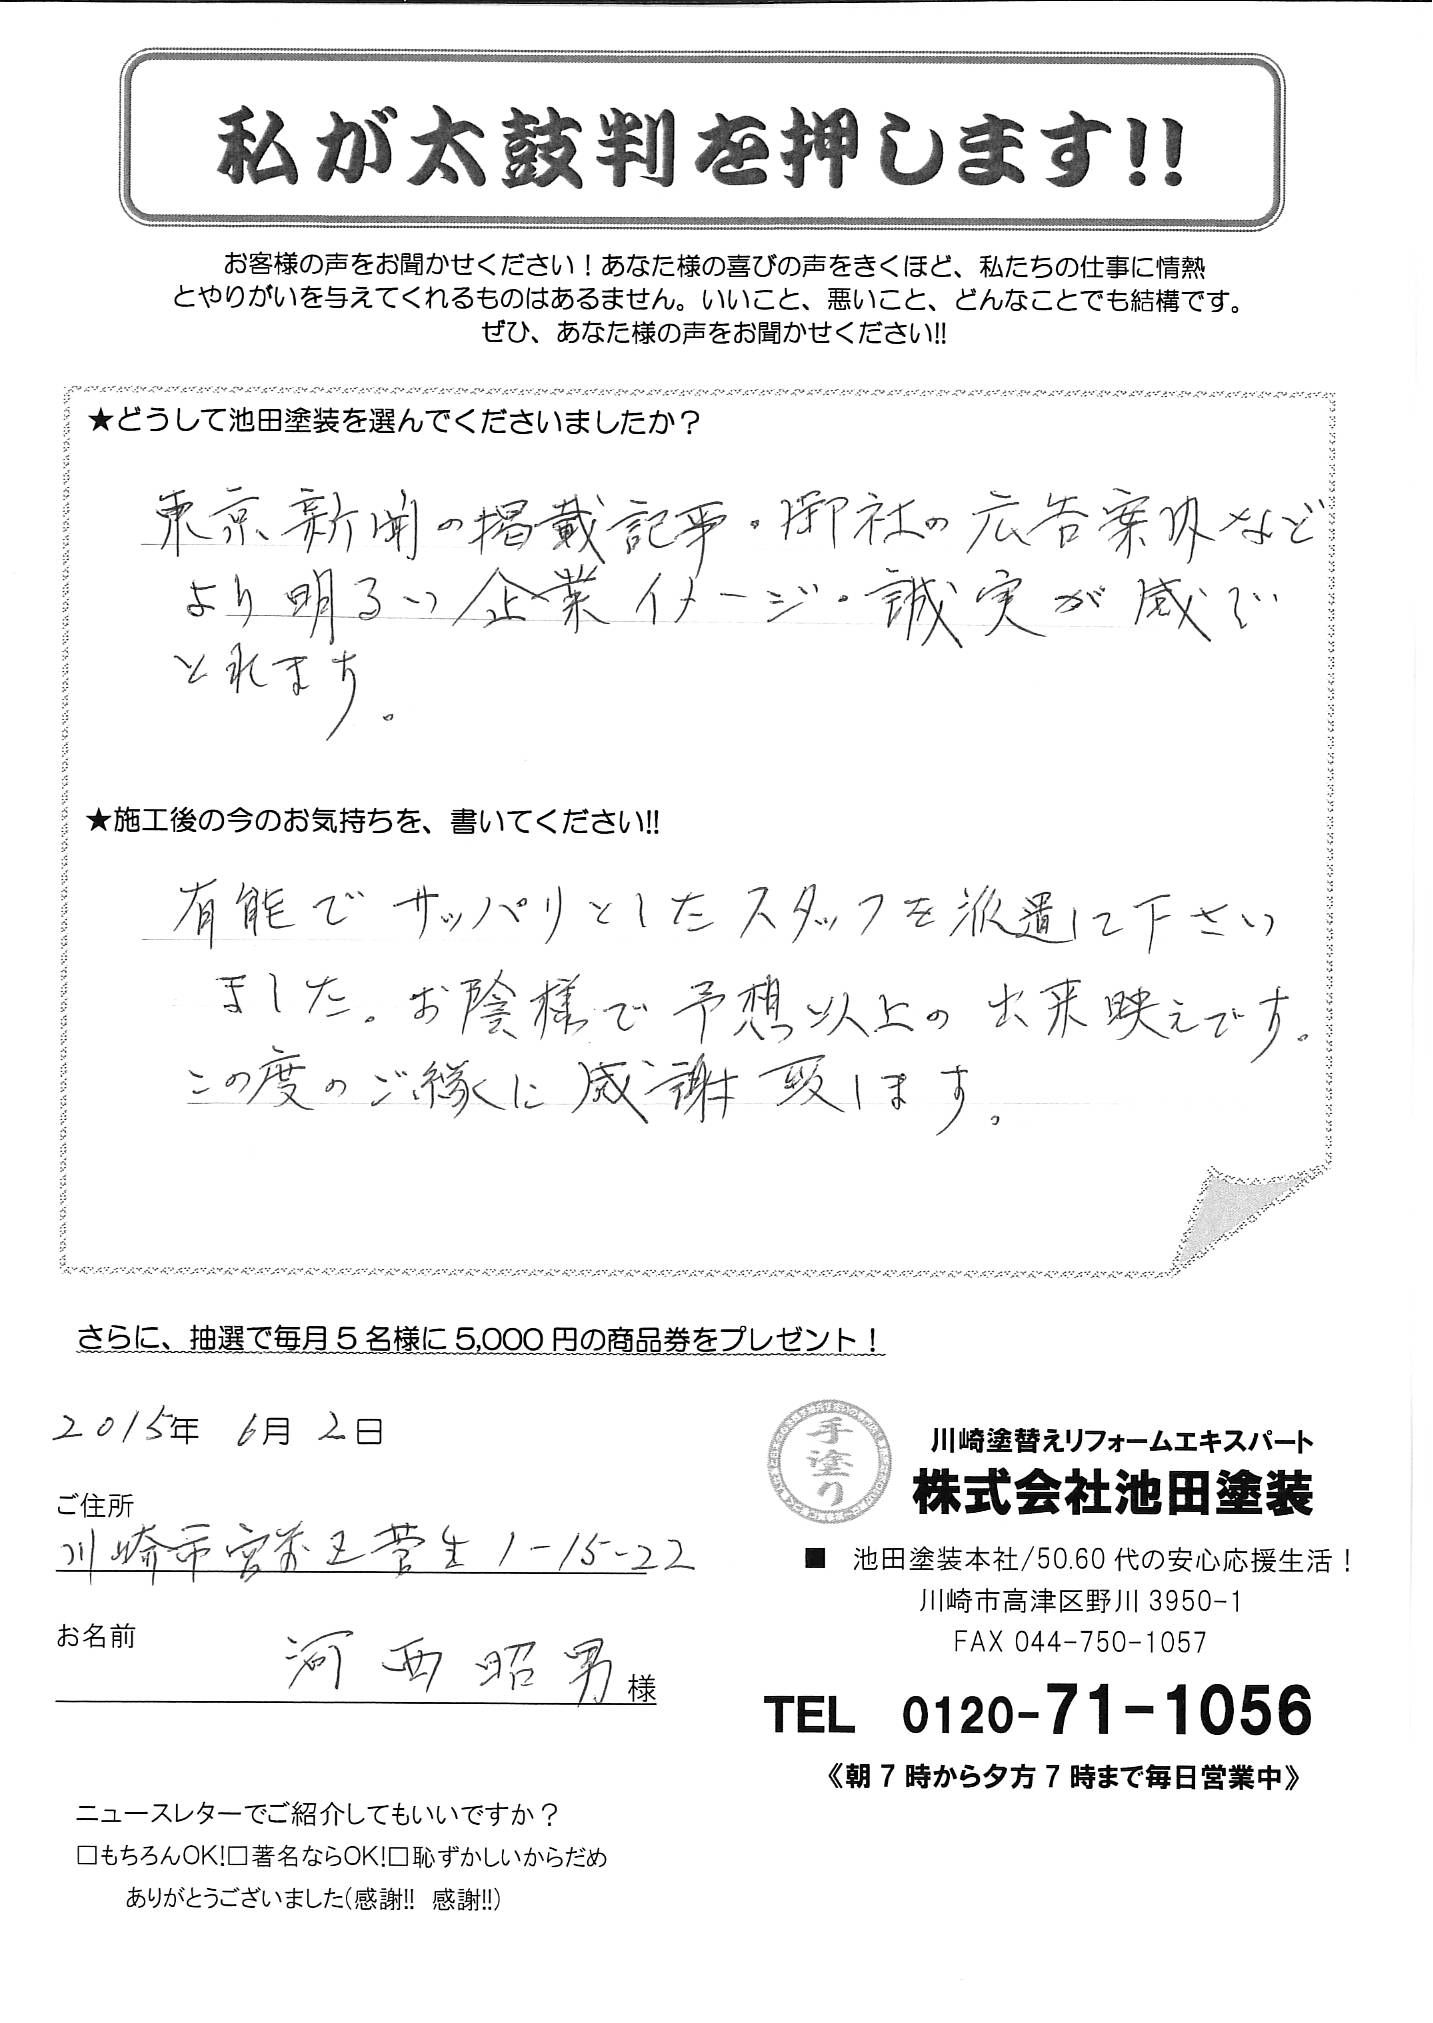 私が太鼓判を押します!!
お客様の声をお聞かせください！あなた様の喜びの声をきくほど、私たちの仕事に情熱
とやりがいを与えてくれるものはあるません。いいこと、悪いこと、どんなことでも結構です。
ぜひ、あなた様の声をお聞かせください!!
★どうして池田塗装を選んでくださいましたか？
東京新聞の掲載記事・御社の広告案内など
より明るい企業イメージ・誠実が感じ
とれます。
★施工後の今のお気持ちを、書いてください!!
有能でサッパリとしたスタッフを派遣して下さい
ました。お陰様で予想以上の出来映えです。
この度のご縁に感謝致します。
さらに、抽選で毎月5名様に5,000円の商品券をプレゼント！
2015年 6月 2日
ご住所
川崎市宮前区菅生1-15-22
お名前
河西昭男 様
手塗り
川崎塗替えリフォームエキスパート
株式会社池田塗装
■ 池田塗装本社/50.60代の安心応援生活！
川崎市高津区野川3950-1
FAX 044-750-1057
TEL 0120-71-1056
《朝7時から夕方7時まで毎日営業中》
ニュースレターでご紹介してもいいですか？
□もちろんOK!□著名ならOK!□恥ずかしいからだめ
ありがとうございました(感謝!! 感謝!!)